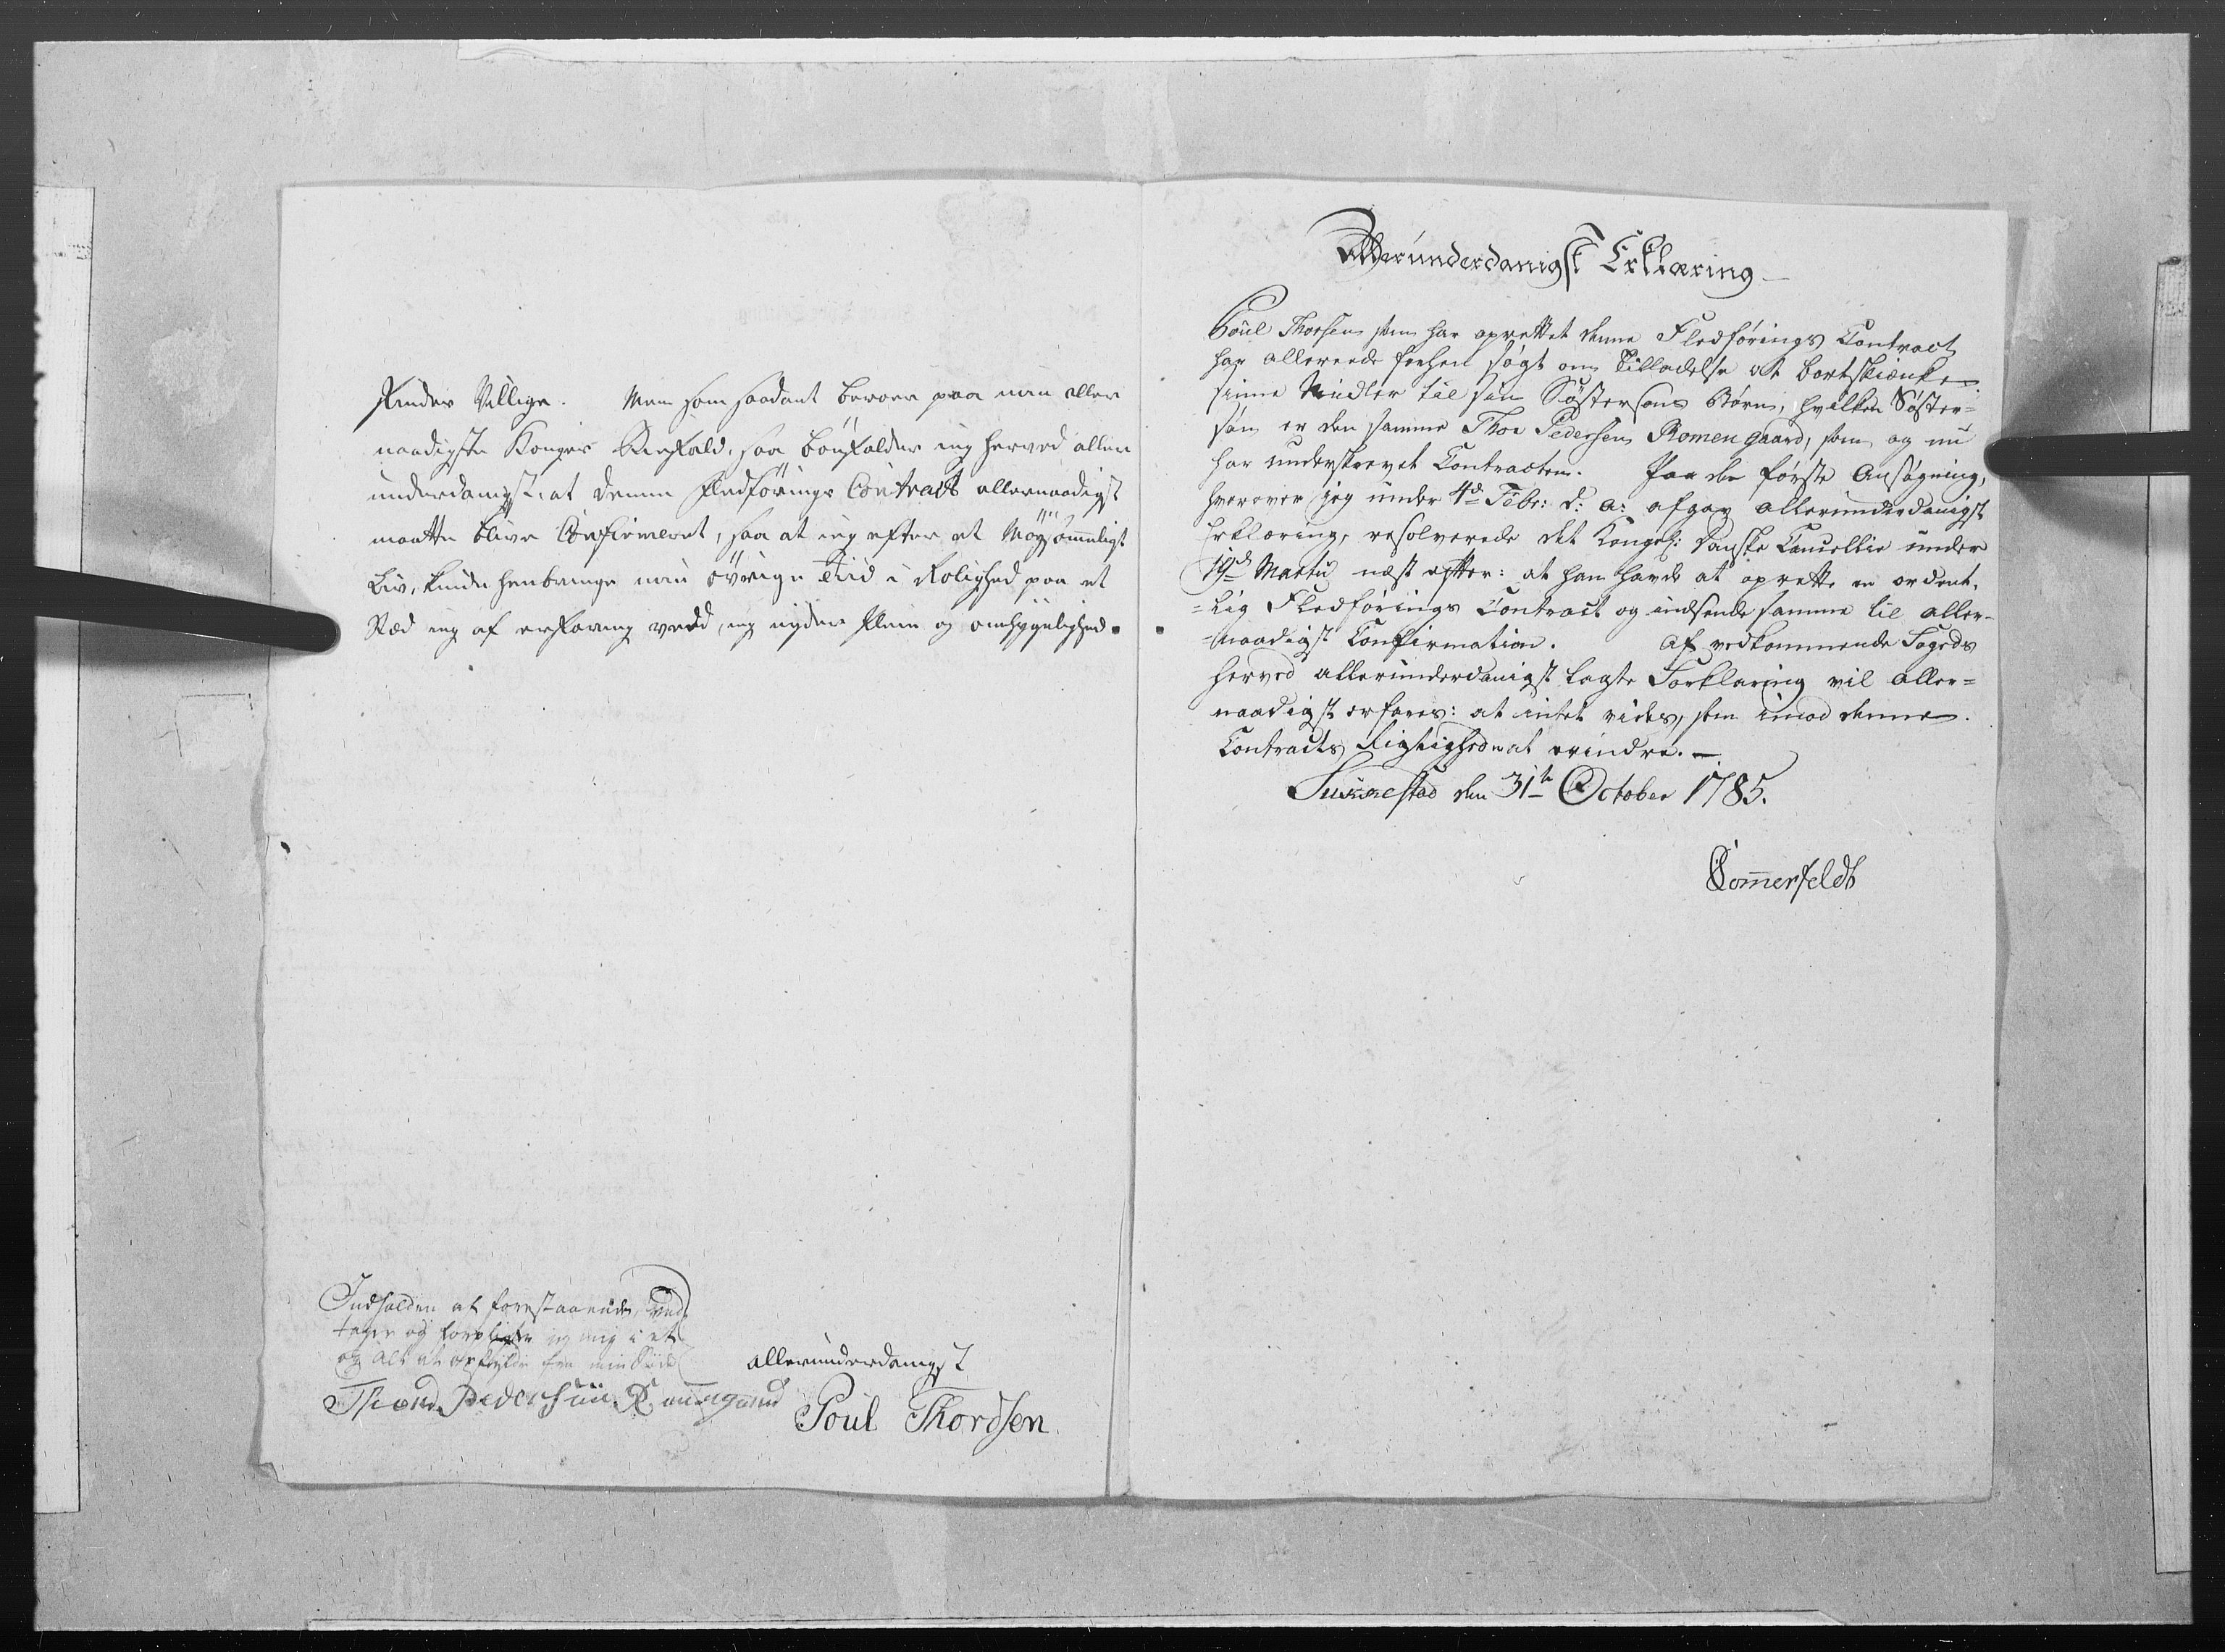 finder Villige. Men som saadant beroer paa min aller
naadigste Konges Biefald, saa bönfalder ieg herved aller
underdanigst: at denne Fledförings Contract allernaadigst
maatte blive Confirmeret, saa at ieg efter et Möysommeligt
Liv, kunde henbringe min övrige Tiid i Rolighed paa et
Stæd ieg af erfaring veed, ieg nyder Pleie og omhyggelighed.
Indholden af forestaaende, ved
tager og forpligter jeg mig i et
og alt at opfylde fra min Side
Thord Pedersen Romengaard
allerunderdanigst
Poul Thordsen.
Allerunderdanigst Erklæring
Poul Thorsen som har oprettet denne Fledförings Contract
har allereede forhen søgt om Tilladelse at bortskienke
sinne Midler til sin Søstersøns Børn, hvilken Søster=
søn er den samme Thor Pedersen Romengaard, som og nu
har underskrevet Contracten. Paa den første Ansøgning,
hvorover jeg under 4de Febr: d: a: afgav allerunderdanigst
Erklæring, resolverede det Kongel: Danske Cancellie under
19de Martii næst efter: at han havde at oprette en ordent=
=lig Fledførings Contract og indsende samme til aller=
=naadigst Confirmation. Af vedkommende Fogeds
herved allerunderdanigst lagte Forklaring vil aller=
naadigst erfares: at intet vides, som imod denne
Contracts Rigtighed er at erindre. —
Sukkestad den 31te October 1785.
Sommerfeldt